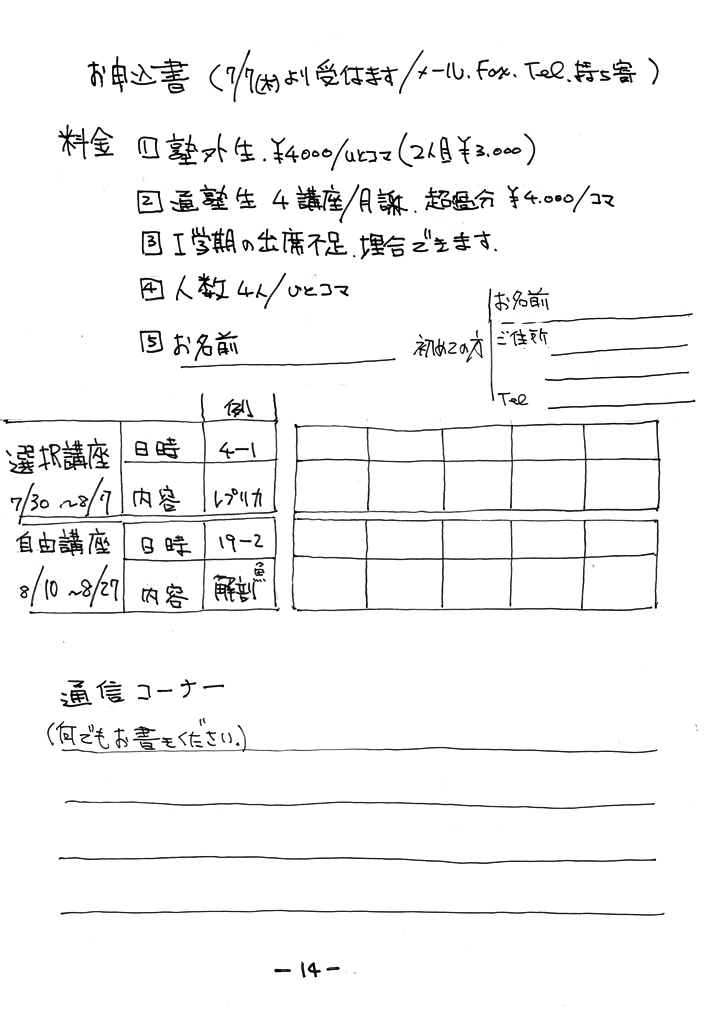 お申込書 (7/7(木)より受付ます/メール.Fax.Tel.持ち寄)
料金 ① 塾外生.¥4000/ひとコマ(2人目¥3.000)
② 通塾生 4講座/月謝.超過分 ¥4.000/コマ
③ I学期の出席不足.埋合できます.
④ 人数 4人/ひとコマ
⑤ お名前
初めての方 お名前
ご住所
Tel
例
選択講座 日時 4-1
7/30~8/7 内容 レプリカ
自由講座 日時 19-2
8/10~8/27 内容 解剖 魚
通信コーナー
(何でもお書きください.)
-14-